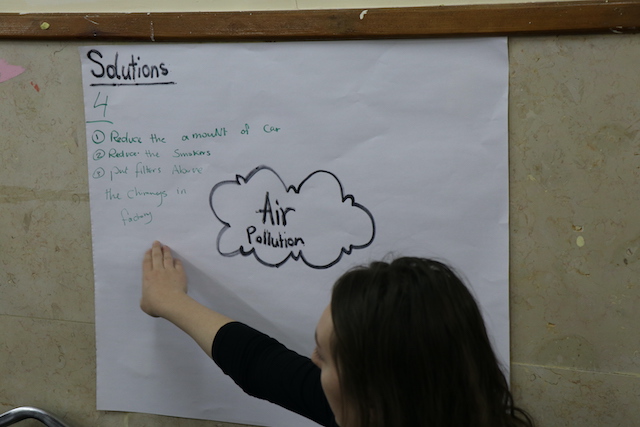 Solutions
4
① Reduce the amount of car
② Reduce the Smokers
③ put filters Above
the chimnays in
Air
Pollution